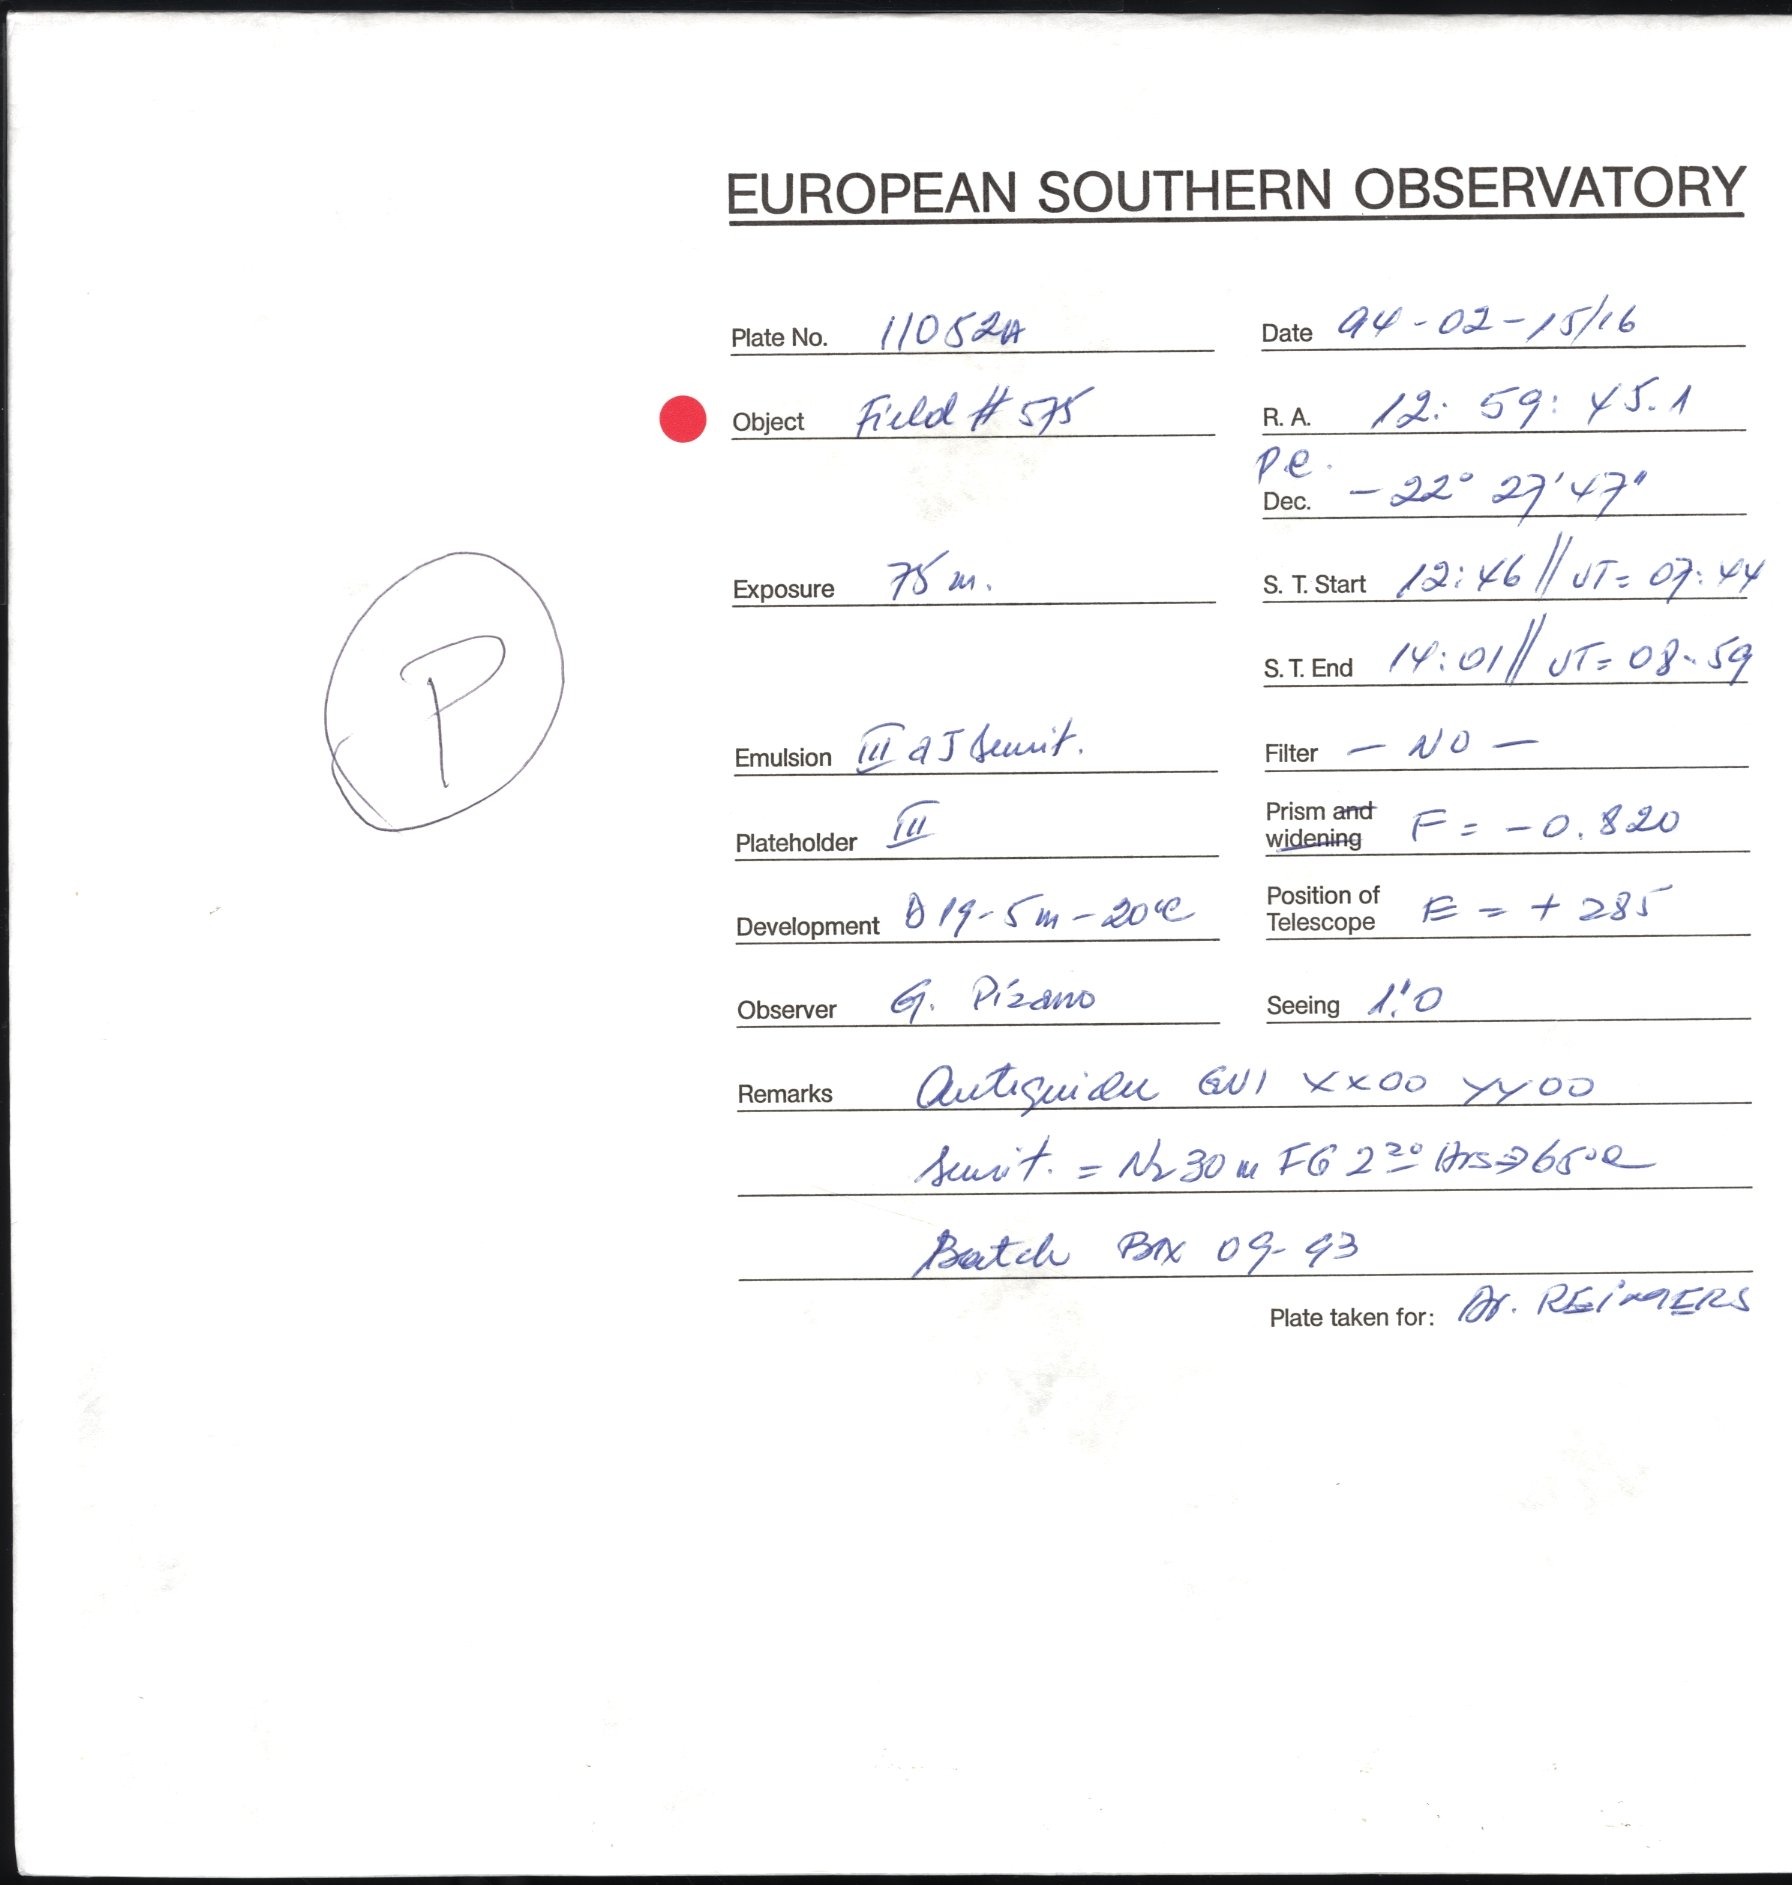 EUROPEAN SOUTHERN OBSERVATORY
Plate No. 11052A Date 94-02-15/16
Object Field # 575 R. A. 12: 59: 45.1
p e.
Dec. - 22° 27' 47"
Exposure 75 m. S. T. Start 12:46 // UT= 07:44
S. T. End 14:01 // UT= 08:59
P
Emulsion III a J sensit. Filter - NO -
Plateholder III Prism and widening F = -0.820
Development D19-5m-20°C Position of Telescope E = + 285
Observer G. Pizarro Seeing 1".0
Remarks XX00 YY00
sensit. = N2 30 m FG 2 20 Hrs => 65°C
Batch 09-93
Plate taken for: Dr. REIMERS